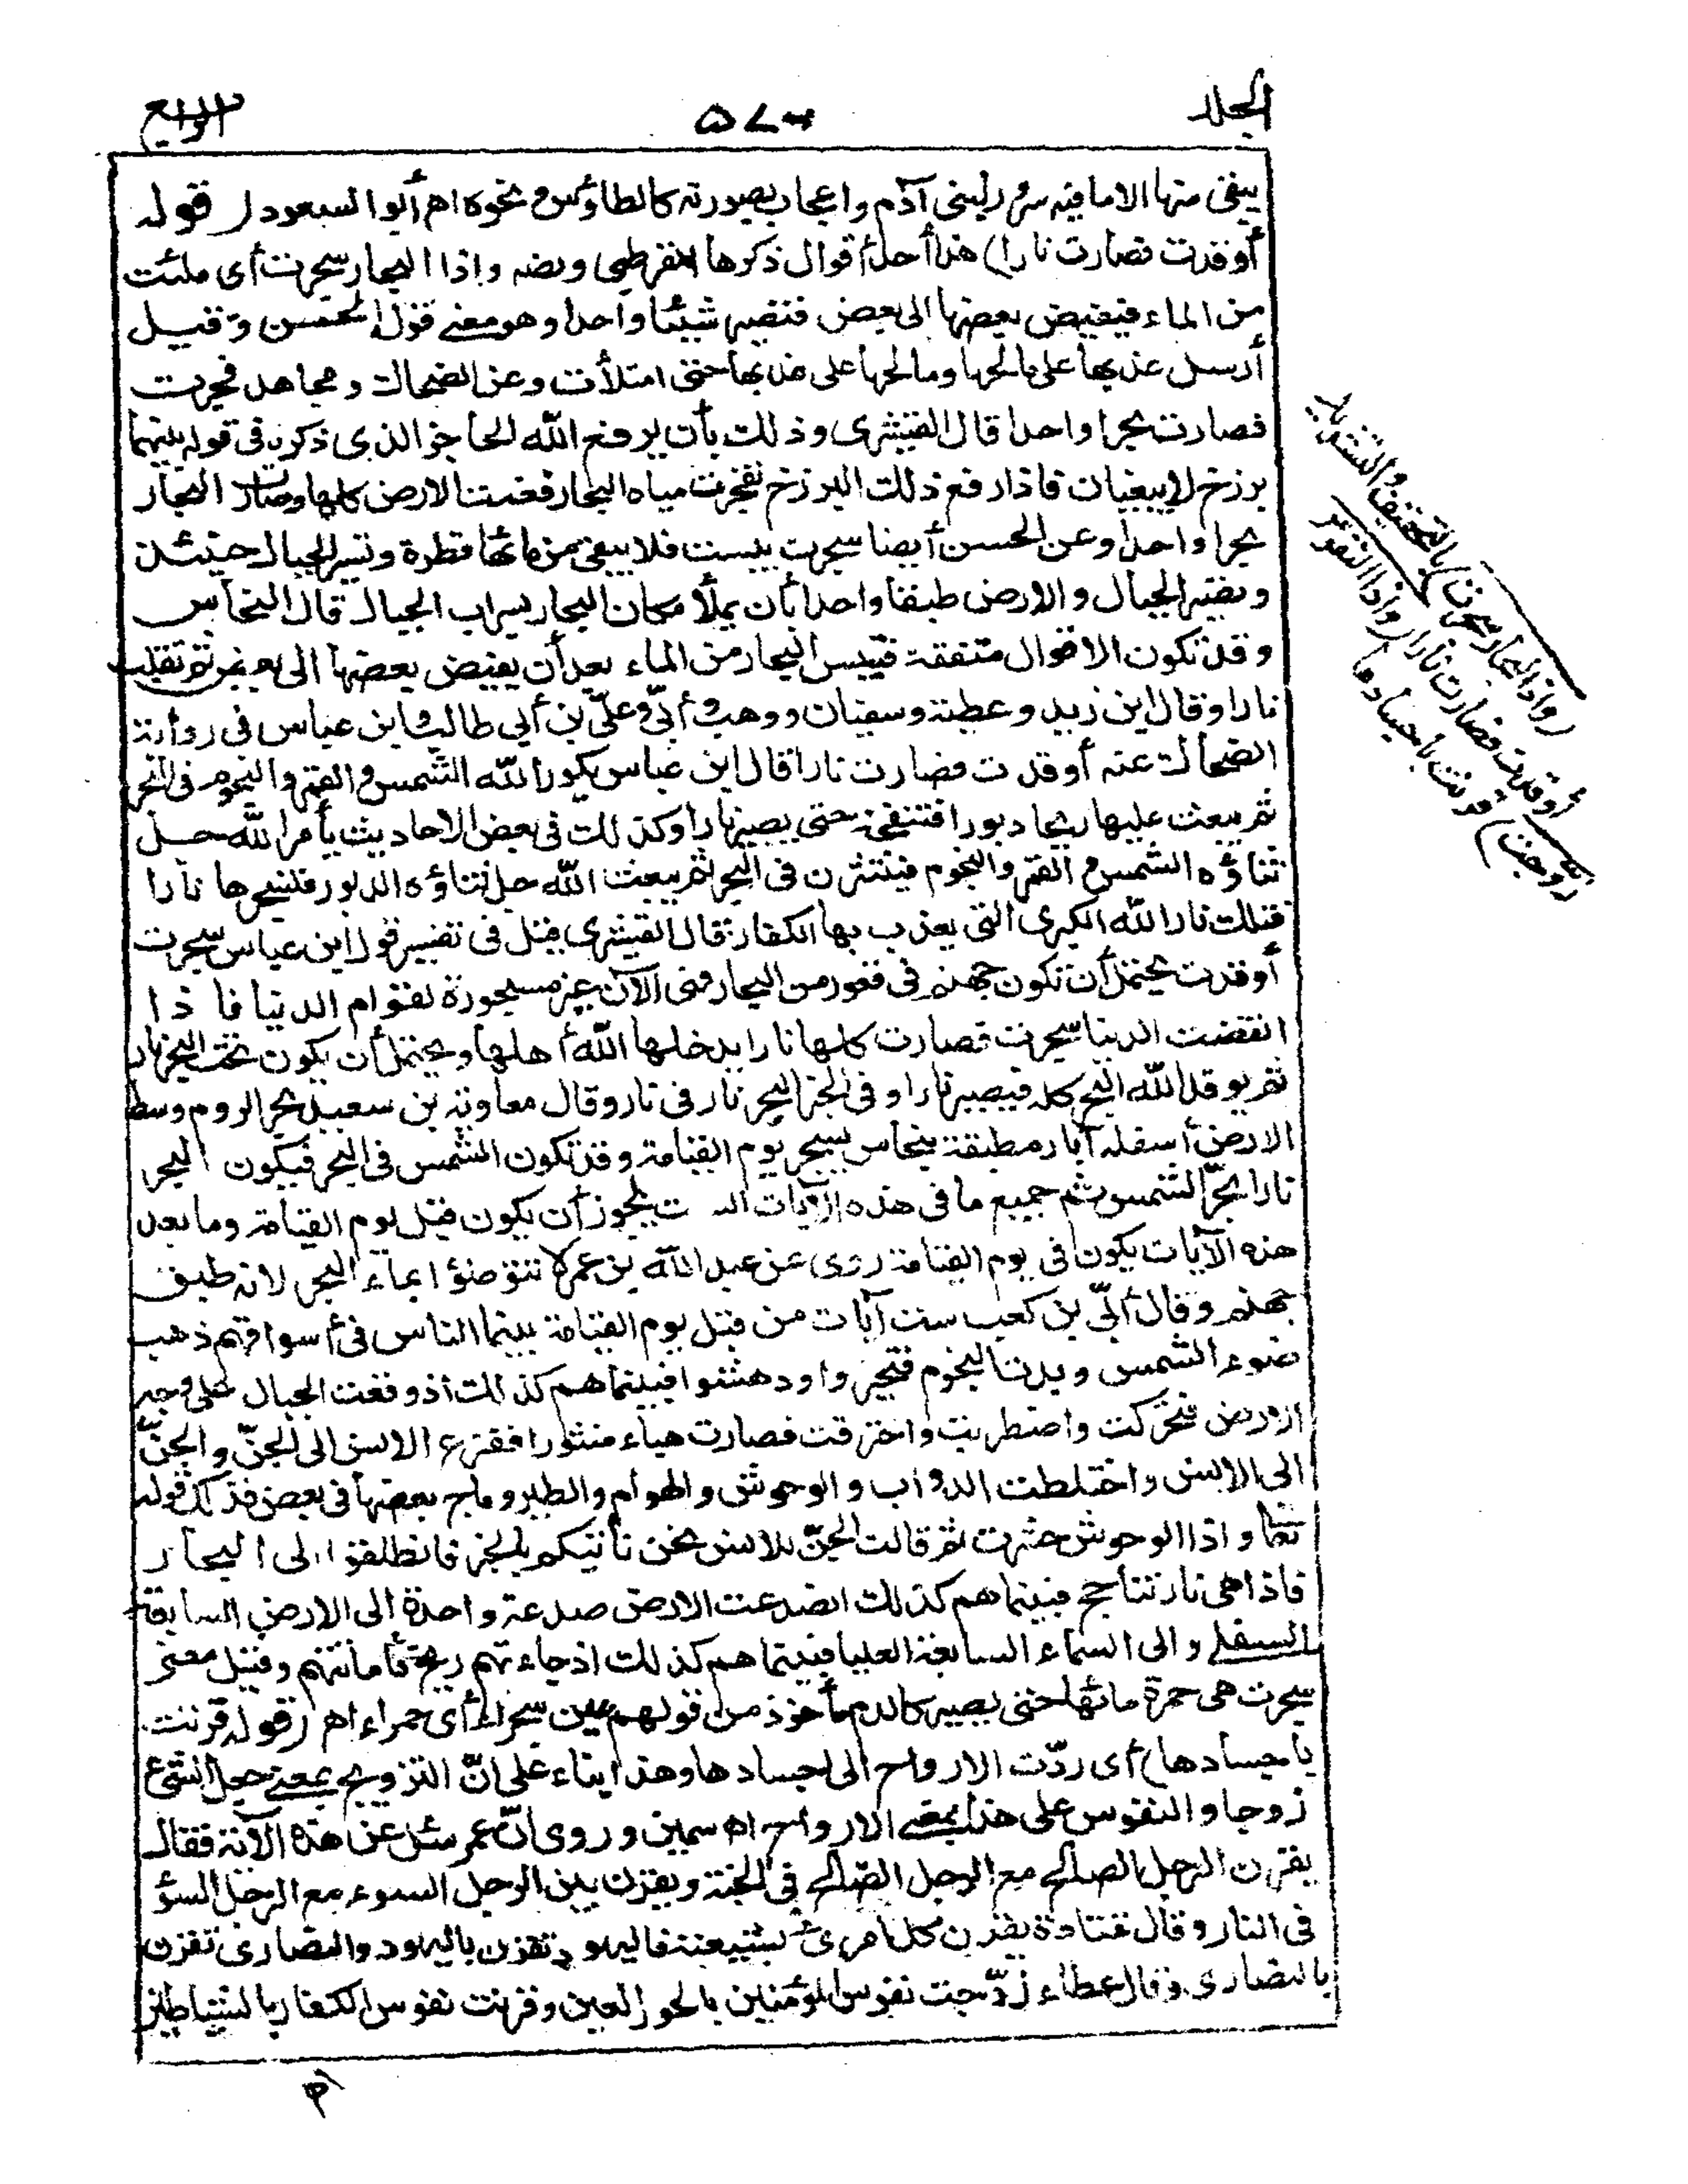 الجلد
الرابع
يبقى منها الا ما فيه سرور لبنى آدم واعجاب بصورته كالطاؤس ونحوه اهم أبو السعود (قوله
أوقدت فصارت نارا) هذا أحد أقوال ذكرها القرطبى ونصه واذا البحار سجرت أى ملئت
من الماء فيفيض بعضها الى بعض فتصير شيئا واحدا وهو معنى قول الحسن وقيل
أرسل عذبها على مالحها ومالحها على عذبها حتى امتلأت وعن الضحاك ومجاهد فجرت
فصارت بحرا واحدا قال القشيرى وذلك بأن يرفع الله الحاجز الذى ذكره فى قوله بينهما
برزخ لا يبغيان فاذا رفع ذلك البرزخ تفجرت مياه البحار فعمت الارض كلها وصارت البحار
بحرا واحدا وعن الحسن أيضا سجرت يبست فلا يبقى من مائها قطرة وتسير الجبال حينئذ
وتصير الجبال والارض طبقا واحدا بأن يملأ مكان البحار بتراب الجبال قال النحاس
وقد تكون الاقوال متفقة فتيبس البحار من الماء بعد أن يفيض بعضها الى بعض ثم تقلب
نارا وقال ابن زيد وعطية وسفيان ووهب وأبىّ وعلىّ بن أبى طالب وابن عباس فى رواية
الضحاك عنه أوقدت فصارت نارا قال ابن عباس يكور الله الشمس والقمر والنجوم فى البحر
ثم يبعث عليها ريحا دبورا فتنفخه حتى يصير نارا وكذلك فى بعض الاحاديث يأمر الله جل
ثناؤه الشمس والقمر والنجوم فينتثرن فى البحر ثم يبعث الله جل ثناؤه الدبور فتسجرها نارا
فتلك نار الله الكبرى التى يعذب بها الكفار قال القشيرى قيل فى تفسير قول ابن عباس سجرت
أوقدت يحتمل أن تكون جهنم فى قعور من البحار فهى الآن غير مسجورة لقوام الدنيا فاذا
انقضت الدنيا سجرت فصارت كلها نارا يدخلها الله أهلها ويحتمل أن يكون تحت البحر نار
ثم يوقد الله البحر كله فيصير نارا وفى الخبر البحر نار فى نار وقال معاوية بن سعيد بحر الروم وسط
الارض أسفله آبار مطبقة بنحاس يسجر يوم القيامة وقد تكون الشمس فى البحر فيكون البحر
نارا بحرّ الشمس ثم جميع ما فى هذه الآيات يجوز أن يكون قبل يوم القيامة وما بعد
هذه الآيات يكون فى يوم القيامة روى عن عبد الله بن عمر لا تتوضؤا بماء البحر لانه طبق
جهنم وقال أبىّ بن كعب ست آيات من قبل يوم القيامة بينما الناس فى أسواقهم ذهب
ضوء الشمس وبدت النجوم فتحيروا ودهشوا فبينما هم كذلك اذ وقعت الجبال على وجه
الارض فتحركت واضطربت واحترقت فصارت هباء منثورا ففزع الانس الى الجنّ والجنّ
الى الانس واختلطت الدواب والوحوش والهوام والطير وماج بعضها فى بعض فذلك قوله
تعالى واذا الوحوش حشرت ثم قالت الجنّ للانس نحن نأتيكم بالخبر فانطلقوا الى البحار
فاذا هى نار تتأجج فبينما هم كذلك انصدعت الارض صدعة واحدة الى الارض السابعة
السفلى والى السماء السابعة العليا فبينما هم كذلك اذ جاءتهم ريح فأماتتهم وقيل معنى
سجرت هى حمرة مائها حتى يصير كالدم مأخوذ من قولهم عين سجراء أى حمراء اهم (قوله قرنت
بأجسادها) أى ردّت الارواح الى أجسادها وهذا بناء على انّ التزويج بمعنى جعل الشئ
زوجا والنفوس على هذا بمعنى الارواح اهم سمين وروى انّ عمر سئل عن هذه الآية فقال
يقرن الرجل الصالح مع الرجل الصالح فى الجنة ويقرن بين الرجل السوء مع الرجل السؤ
فى النار وقال قتادة يقرن كل امرئ بشيعته فاليهود تقرن باليهود والنصارى تقرن
بالنصارى وقال عطاء زوّجت نفوس المؤمنين بالحور العين وقرنت نفوس الكفار بالشياطين
(واذا البحار سجرت) بالتخفيف والتشديد
أوقدت فصارت نارا (واذا النفوس
زوجت) قرنت بأجسادها